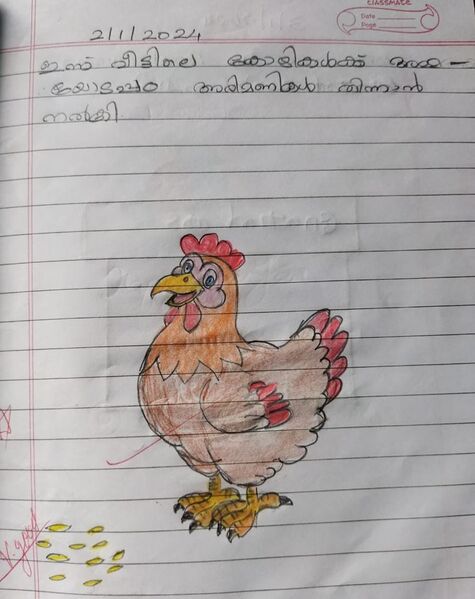 classmate
Date
Page
2/1/2024
ഇന്ന് വീട്ടിലെ കോഴികൾക്ക് അമ്മ-
യോടൊപ്പം അരിമണികൾ തിന്നാൻ
നൽകി
V. good